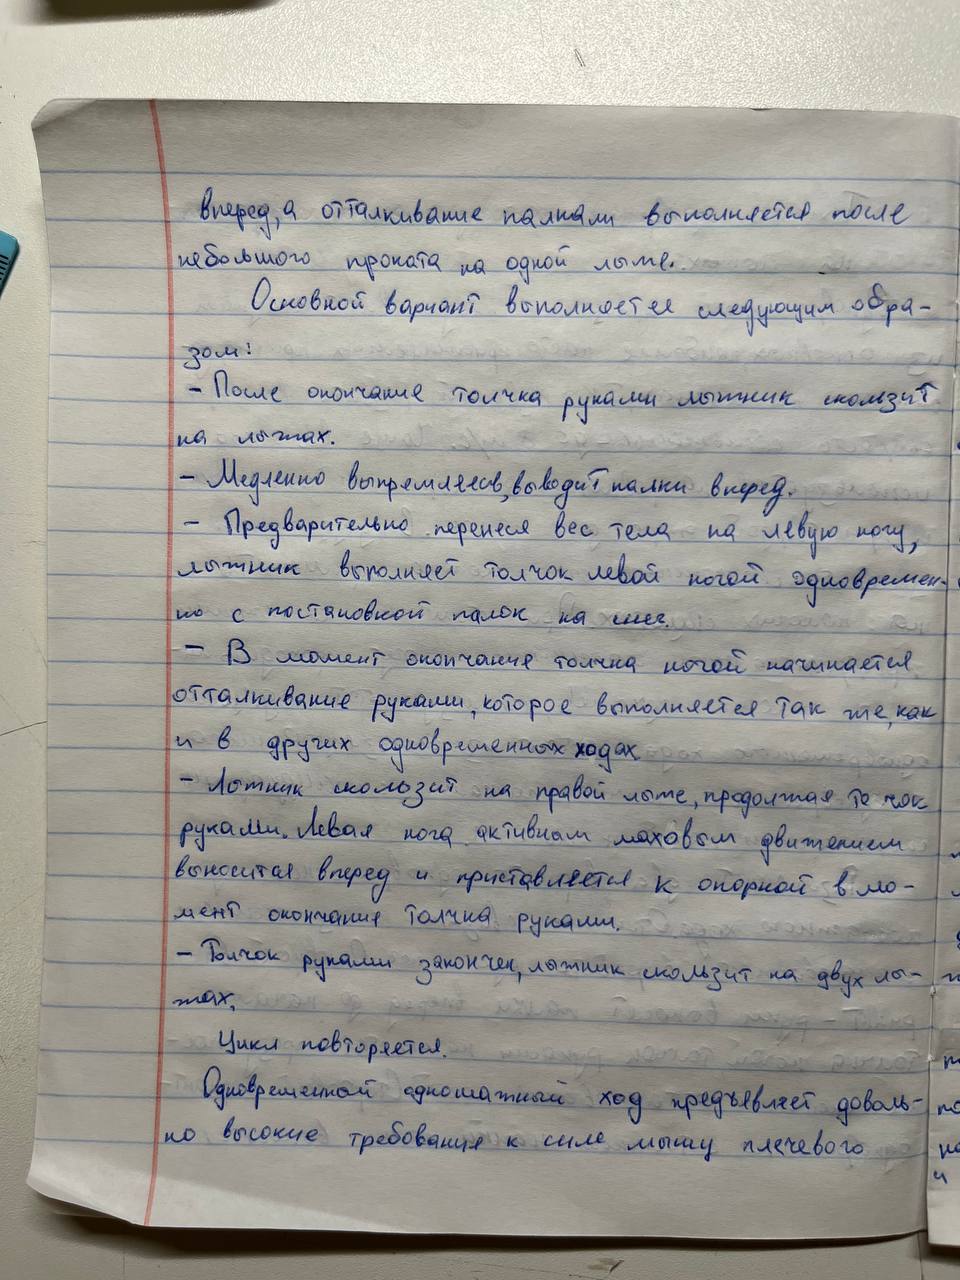 вперед, а отталкивание палками выполняется после
небольшого проката на одной лыже.
Основной вариант выполняется следующим обра-
зом:
- После окончание толчка руками лыжник скользит
на лыжах.
- Медленно выпремляясь, выводит палки вперед.
- Предварительно перенеся вес тела на левую ногу,
лыжник выполняет толчок левой ногой одновремен-
но с постановкой палок на снег.
- В момент окончания толчка ногой начинается
отталкивание руками, которое выполняется так же, как
и в других одновременных ходах
- Лыжник скользит на правой лыже, продолжая толчок
руками. Левая нога активным маховым движением
выносится вперед и приставляется к опорной в мо-
мент окончание толчка руками.
- Толчок руками закончен, лыжник скользит на двух лы-
жах.
Цикл повторяется.
Одновременной одношажный ход предъявляет доволь-
но высокие требования к силе мышц плечевого